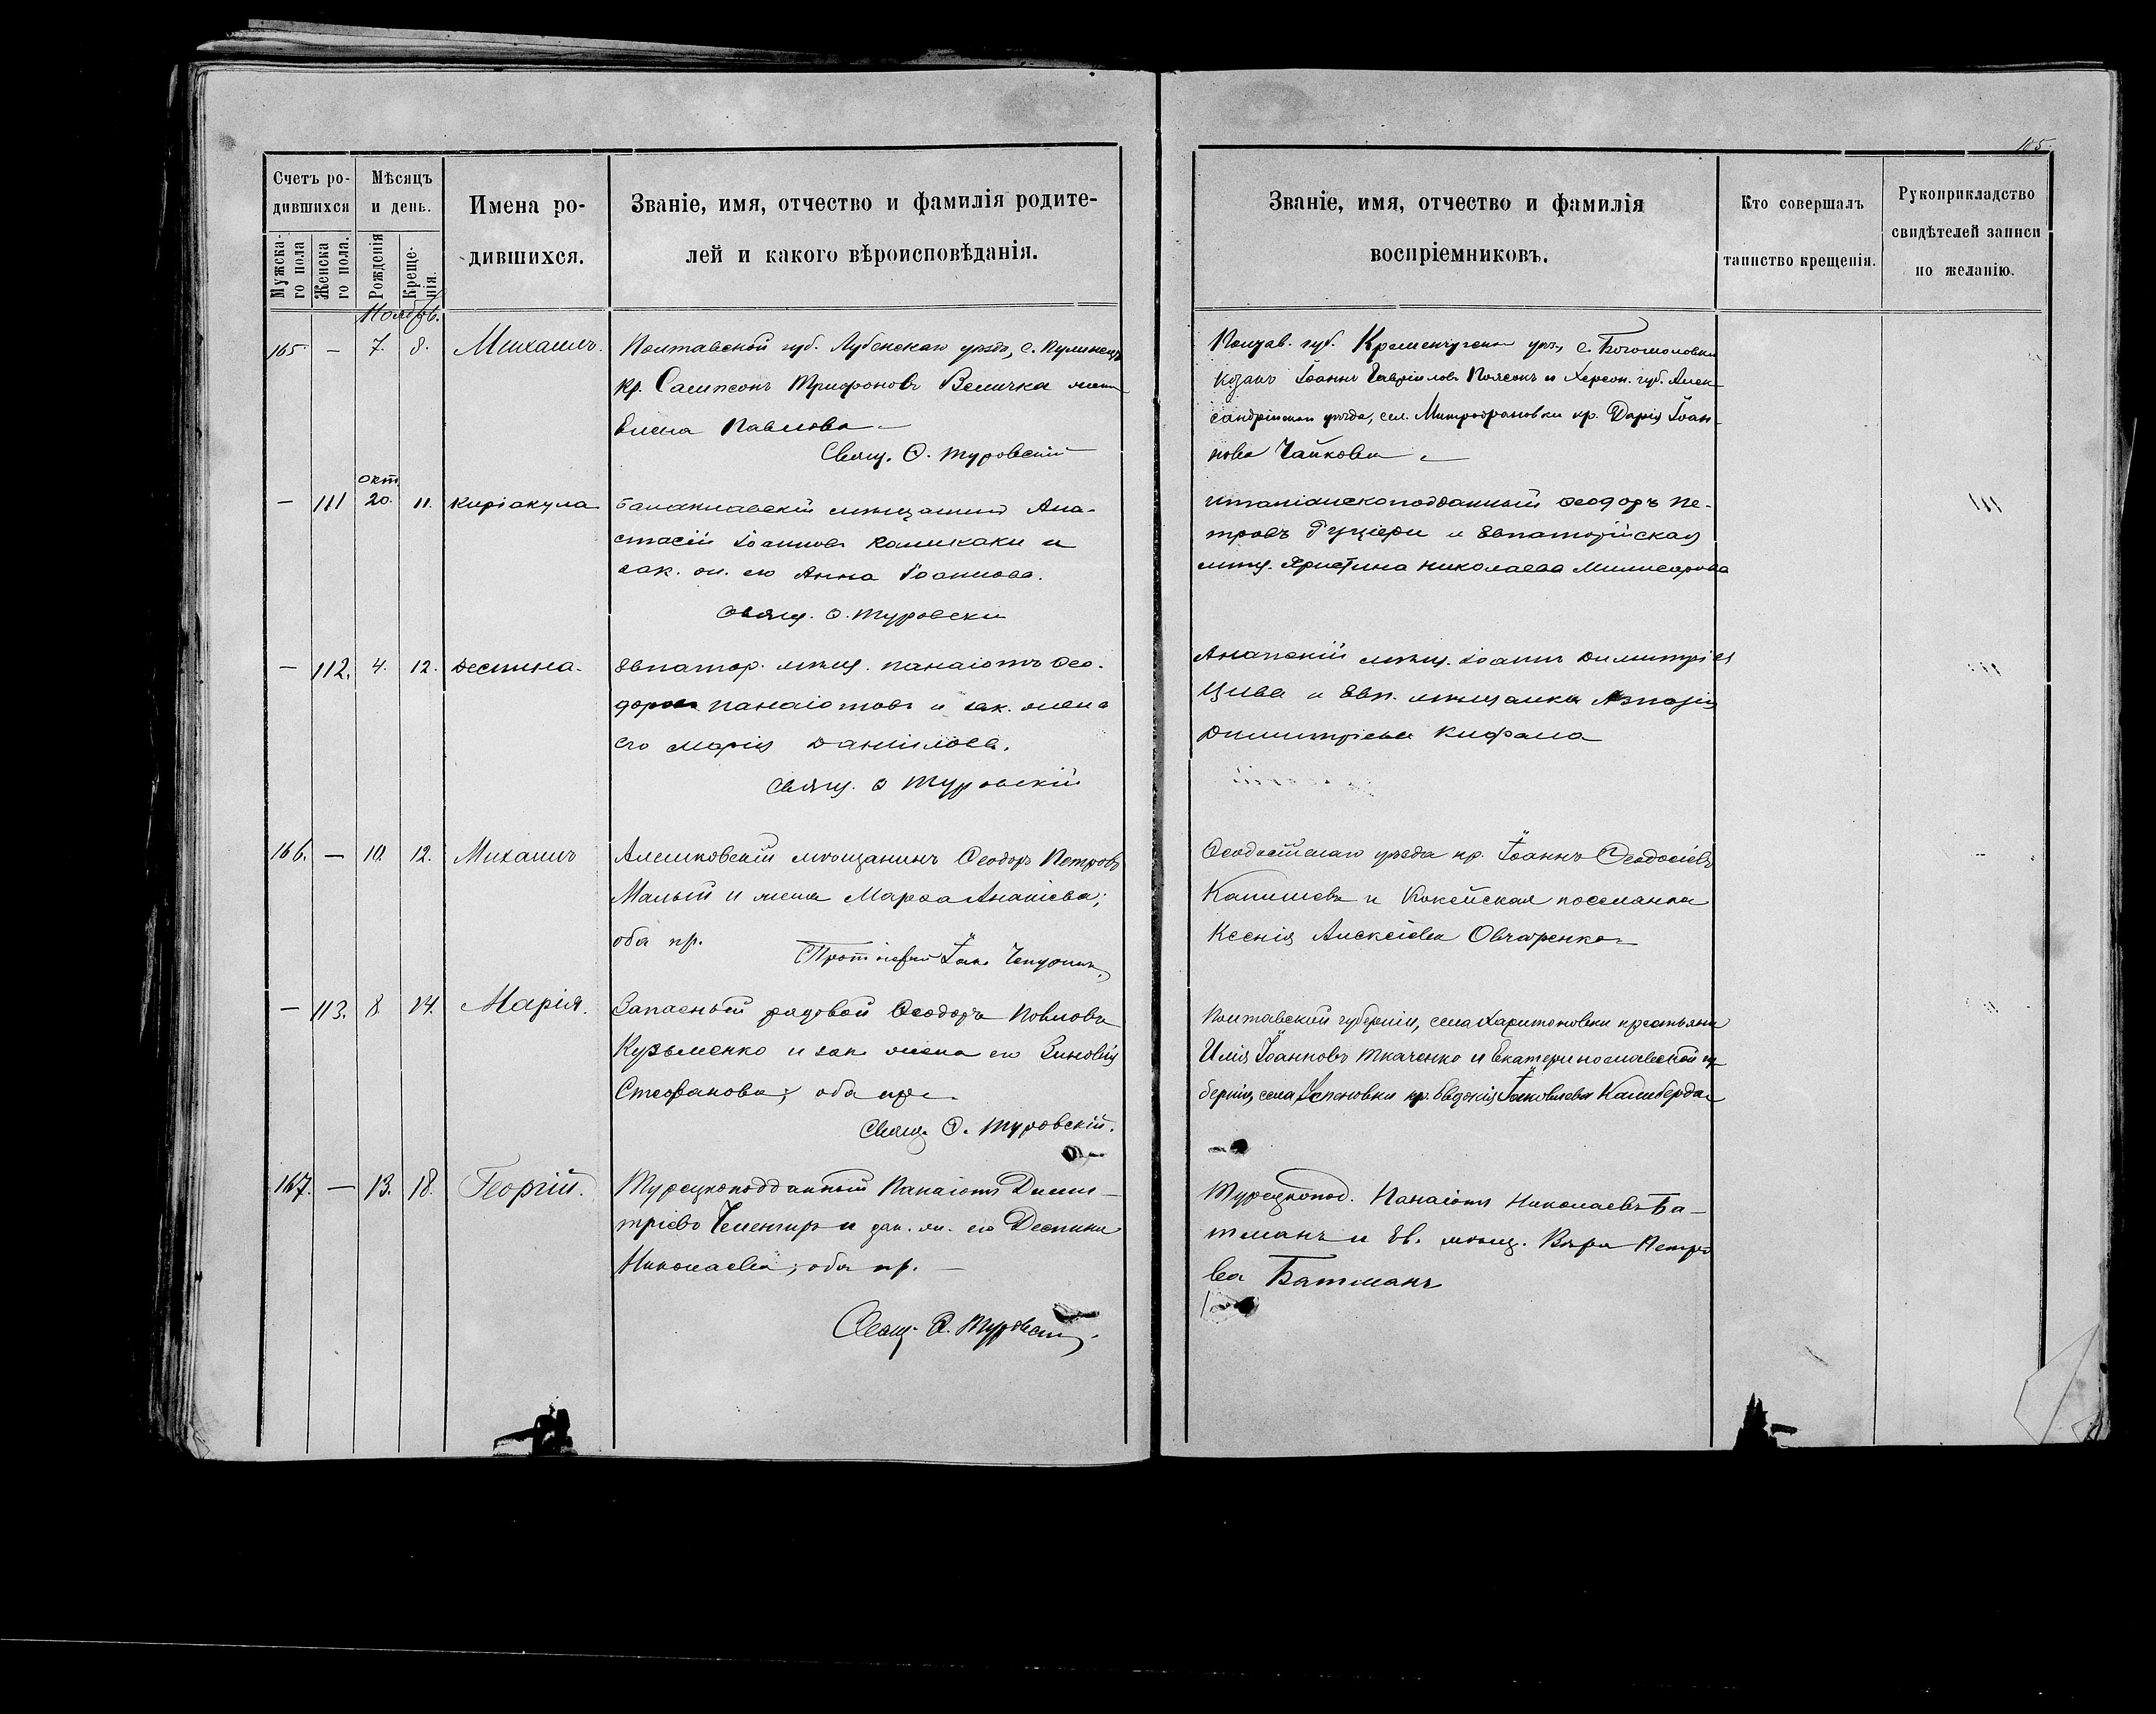 105
Счетъ ро-
дившихся
Мѣсяцъ
и день.
Мужска-
го пола
Женска
го пола.
Рожденія
Креще-
нія.
Имена ро-
дившихся.
Званіе, имя, отчество и фамилія родите-
лей и какого вѣроисповѣданія.
Званіе, имя, отчество и фамилія
воспріемниковъ.
Кто совершалъ
таинство крещенія.
Рукоприкладство
свидѣтелей записи
по желанію.
Ноябрь.
165 — 7. 8. Михаилъ.
Полтавской губ. Лубенскаго уѣзда, с.
кр. Сампсонъ Трифоновъ Величка жена
Елена Павлова
Свящ. Ѳ. Туровскій
Полтав. губ. Кременчугскаго уѣз., с. Богомоловки
козакъ Іоаннъ Гавріиловъ Поясокъ и Херсон. губ. Алек-
сандрійскаго уѣзда, сел. Митрофановки кр. Дарія Іоан-
нова Чайкова
окт.
— 111 20. 11. Киріакула
Балаклавскій мѣщанинъ Ана-
стасій Іоанновъ и
зак. ж. его Анна Іоаннова.
Свящ. Ѳ. Туровски
Италіанскоподданный Ѳеодоръ Пе-
тровъ и Евпаторійская
мѣщ. Христина Николаева
— 112. 4. 12. Деспина.
Евпатор. мѣщ. Панаіотъ Ѳео-
доровъ Панаіотовъ и зак. жена
его Марія Даніилова.
Свящ. Ѳ Туровскій
Анапскій мѣщ. Іоаннъ Димитріев
Цива и Евп. мѣщанка
Димитріева
166. — 10. 12. Михаилъ
Алешковскій мѣщанинъ Ѳеодоръ Петровъ
Малый и жена Марѳа Ананіева;
оба пр.
Протоіерей
Ѳеодосійскаго уѣзда кр. Іоаннъ Ѳеодосіевъ
и поселянка
Ксенія Алексіева Овчаренко
— 113. 8. 14. Марія.
Запасный рядовой Ѳеодоръ Павловъ
Кузьменко и зак. жена его Зиновія
Стефанова; оба пр.
Свящ. Ѳ. Туровскій.
Полтавской губерніи, села Харитоновки крестьянинъ
Илія Іоанновъ Ткаченко и Екатеринославской гу-
берніи, села Успеновки кр. Евдокія Іаковлева Калиберда
167. — 13. 18. Георгій.
Турецкоподданный Панаіотъ Дими-
тріевъ и зак. ж. его Деспина
Николаева; оба пр.
Свящ. Ѳ. Туровскій.
Турецкопод. Панаіотъ Николаевъ Ба-
тманъ и Ев. мѣщ. Вѣра Петро
ва Батманъ